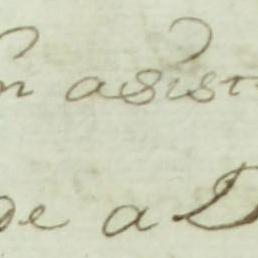 n asist
de a D